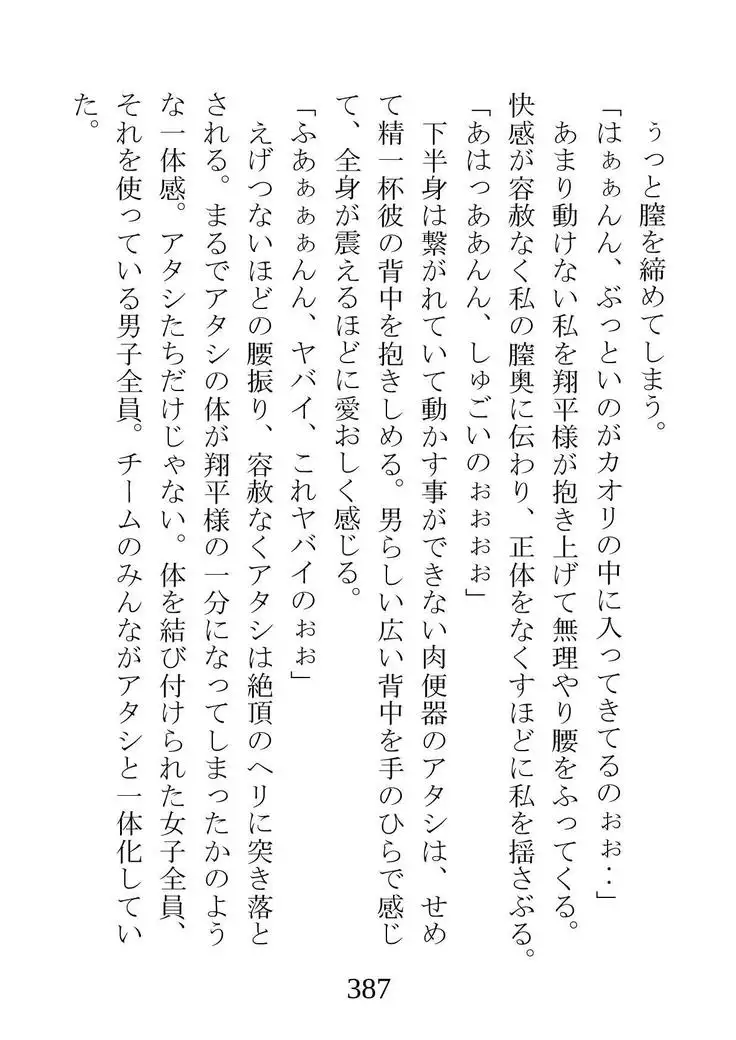 うっと膣を締めてしまう。
「はぁぁんん、ぶっといのがカオリの中に入ってきてるのぉぉ‥」
あまり動けない私を翔平様が抱き上げて無理やり腰をふってくる。
快感が容赦なく私の膣奥に伝わり、正体をなくすほどに私を揺さぶる。
「あはっああんん、しゅごいのぉぉぉぉ」
下半身は繋がれていて動かす事ができない肉便器のアタシは、せめ
て精一杯彼の背中を抱きしめる。男らしい広い背中を手のひらで感じ
て、全身が震えるほどに愛おしく感じる。
「ふあぁぁぁんん、ヤバイ、これヤバイのぉぉ」
えげつないほどの腰振り、容赦なくアタシは絶頂のヘリに突き落と
される。まるでアタシの体が翔平様の一分になってしまったかのよう
な一体感。アタシたちだけじゃない。体を結び付けられた女子全員、
それを使っている男子全員。チームのみんながアタシと一体化してい
た。
387